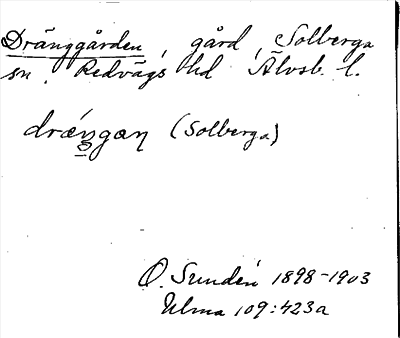 Dränggården, gård, Solberga
sn. Redvägs hd Älvsb. l.
drǽŋgaɳ (Solberga)
O. Sundén 1898-1903
Ulma 109:423a